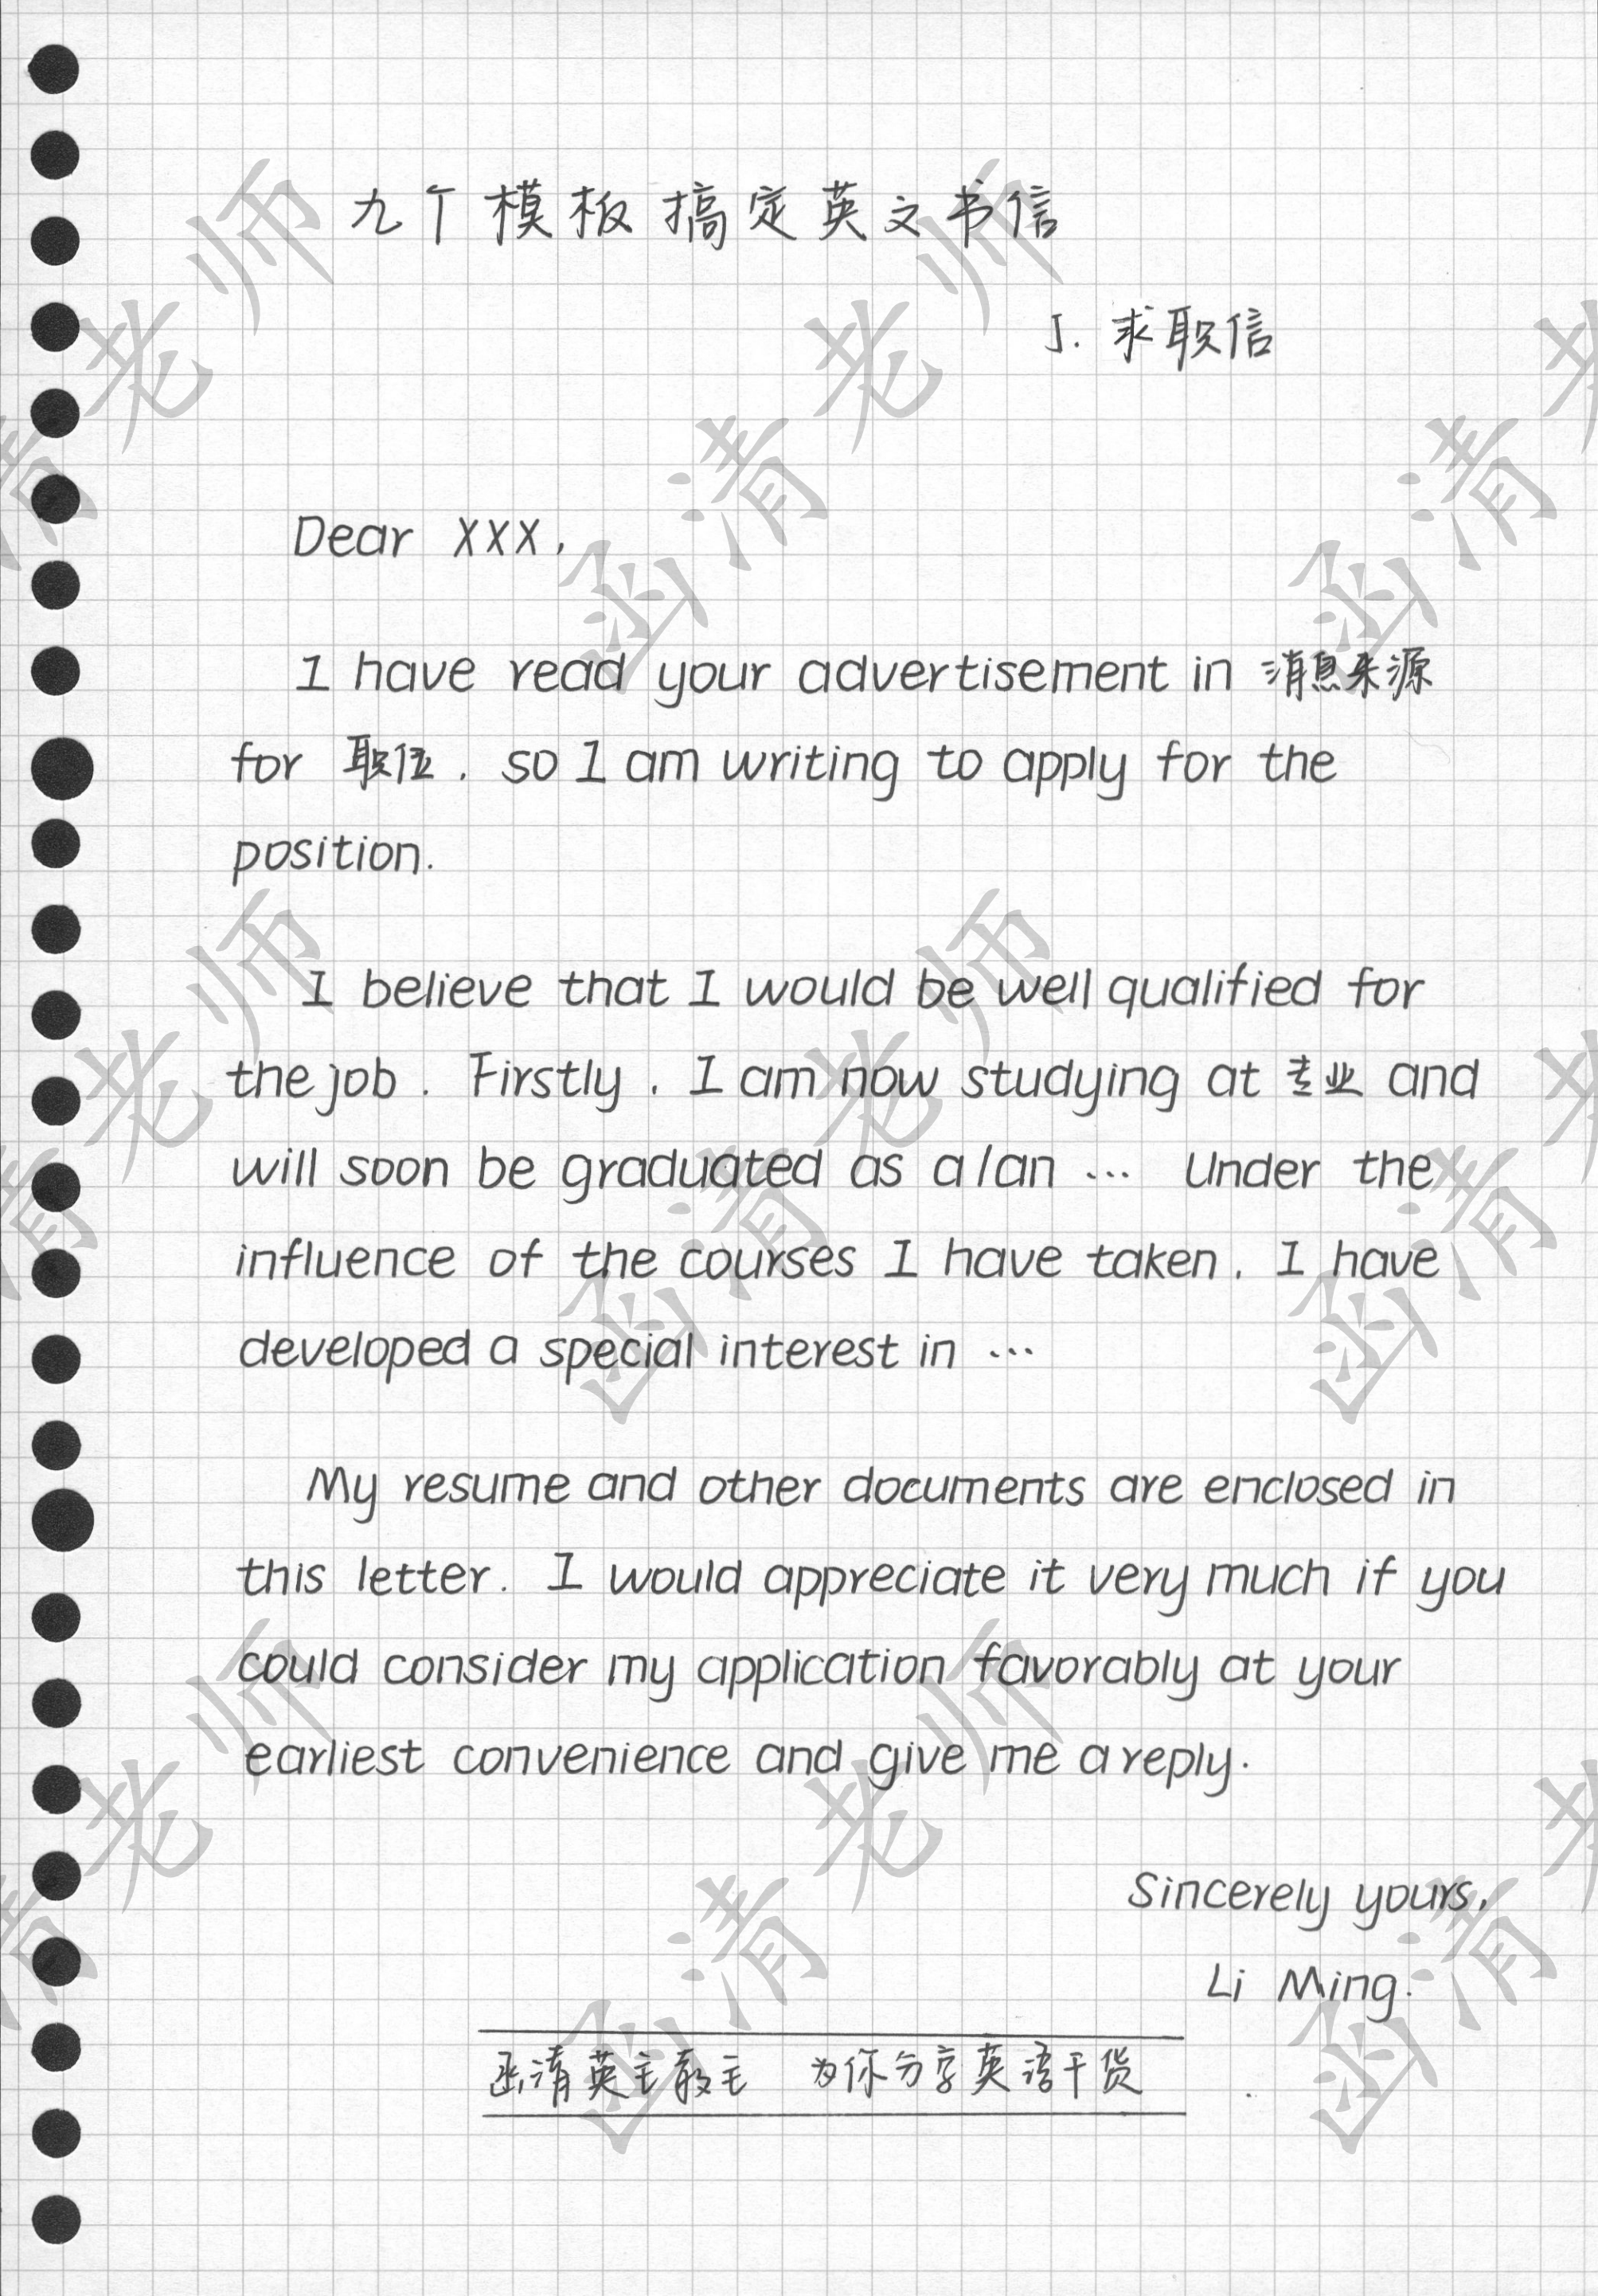 九个模板搞定英文书信
1. 求职信
Dear XXX,
I have read your advertisement in 消息来源
for 职位, so I am writing to apply for the
position.
I believe that I would be well qualified for
the job. Firstly, I am now studying at 专业 and
will soon be graduated as a/an … Under the
influence of the courses I have taken, I have
developed a special interest in …
My resume and other documents are enclosed in
this letter. I would appreciate it very much if you
could consider my application favorably at your
earliest convenience and give me a reply.
Sincerely yours,
Li Ming.
函清英主教主 为你分享英语干货
函清老师